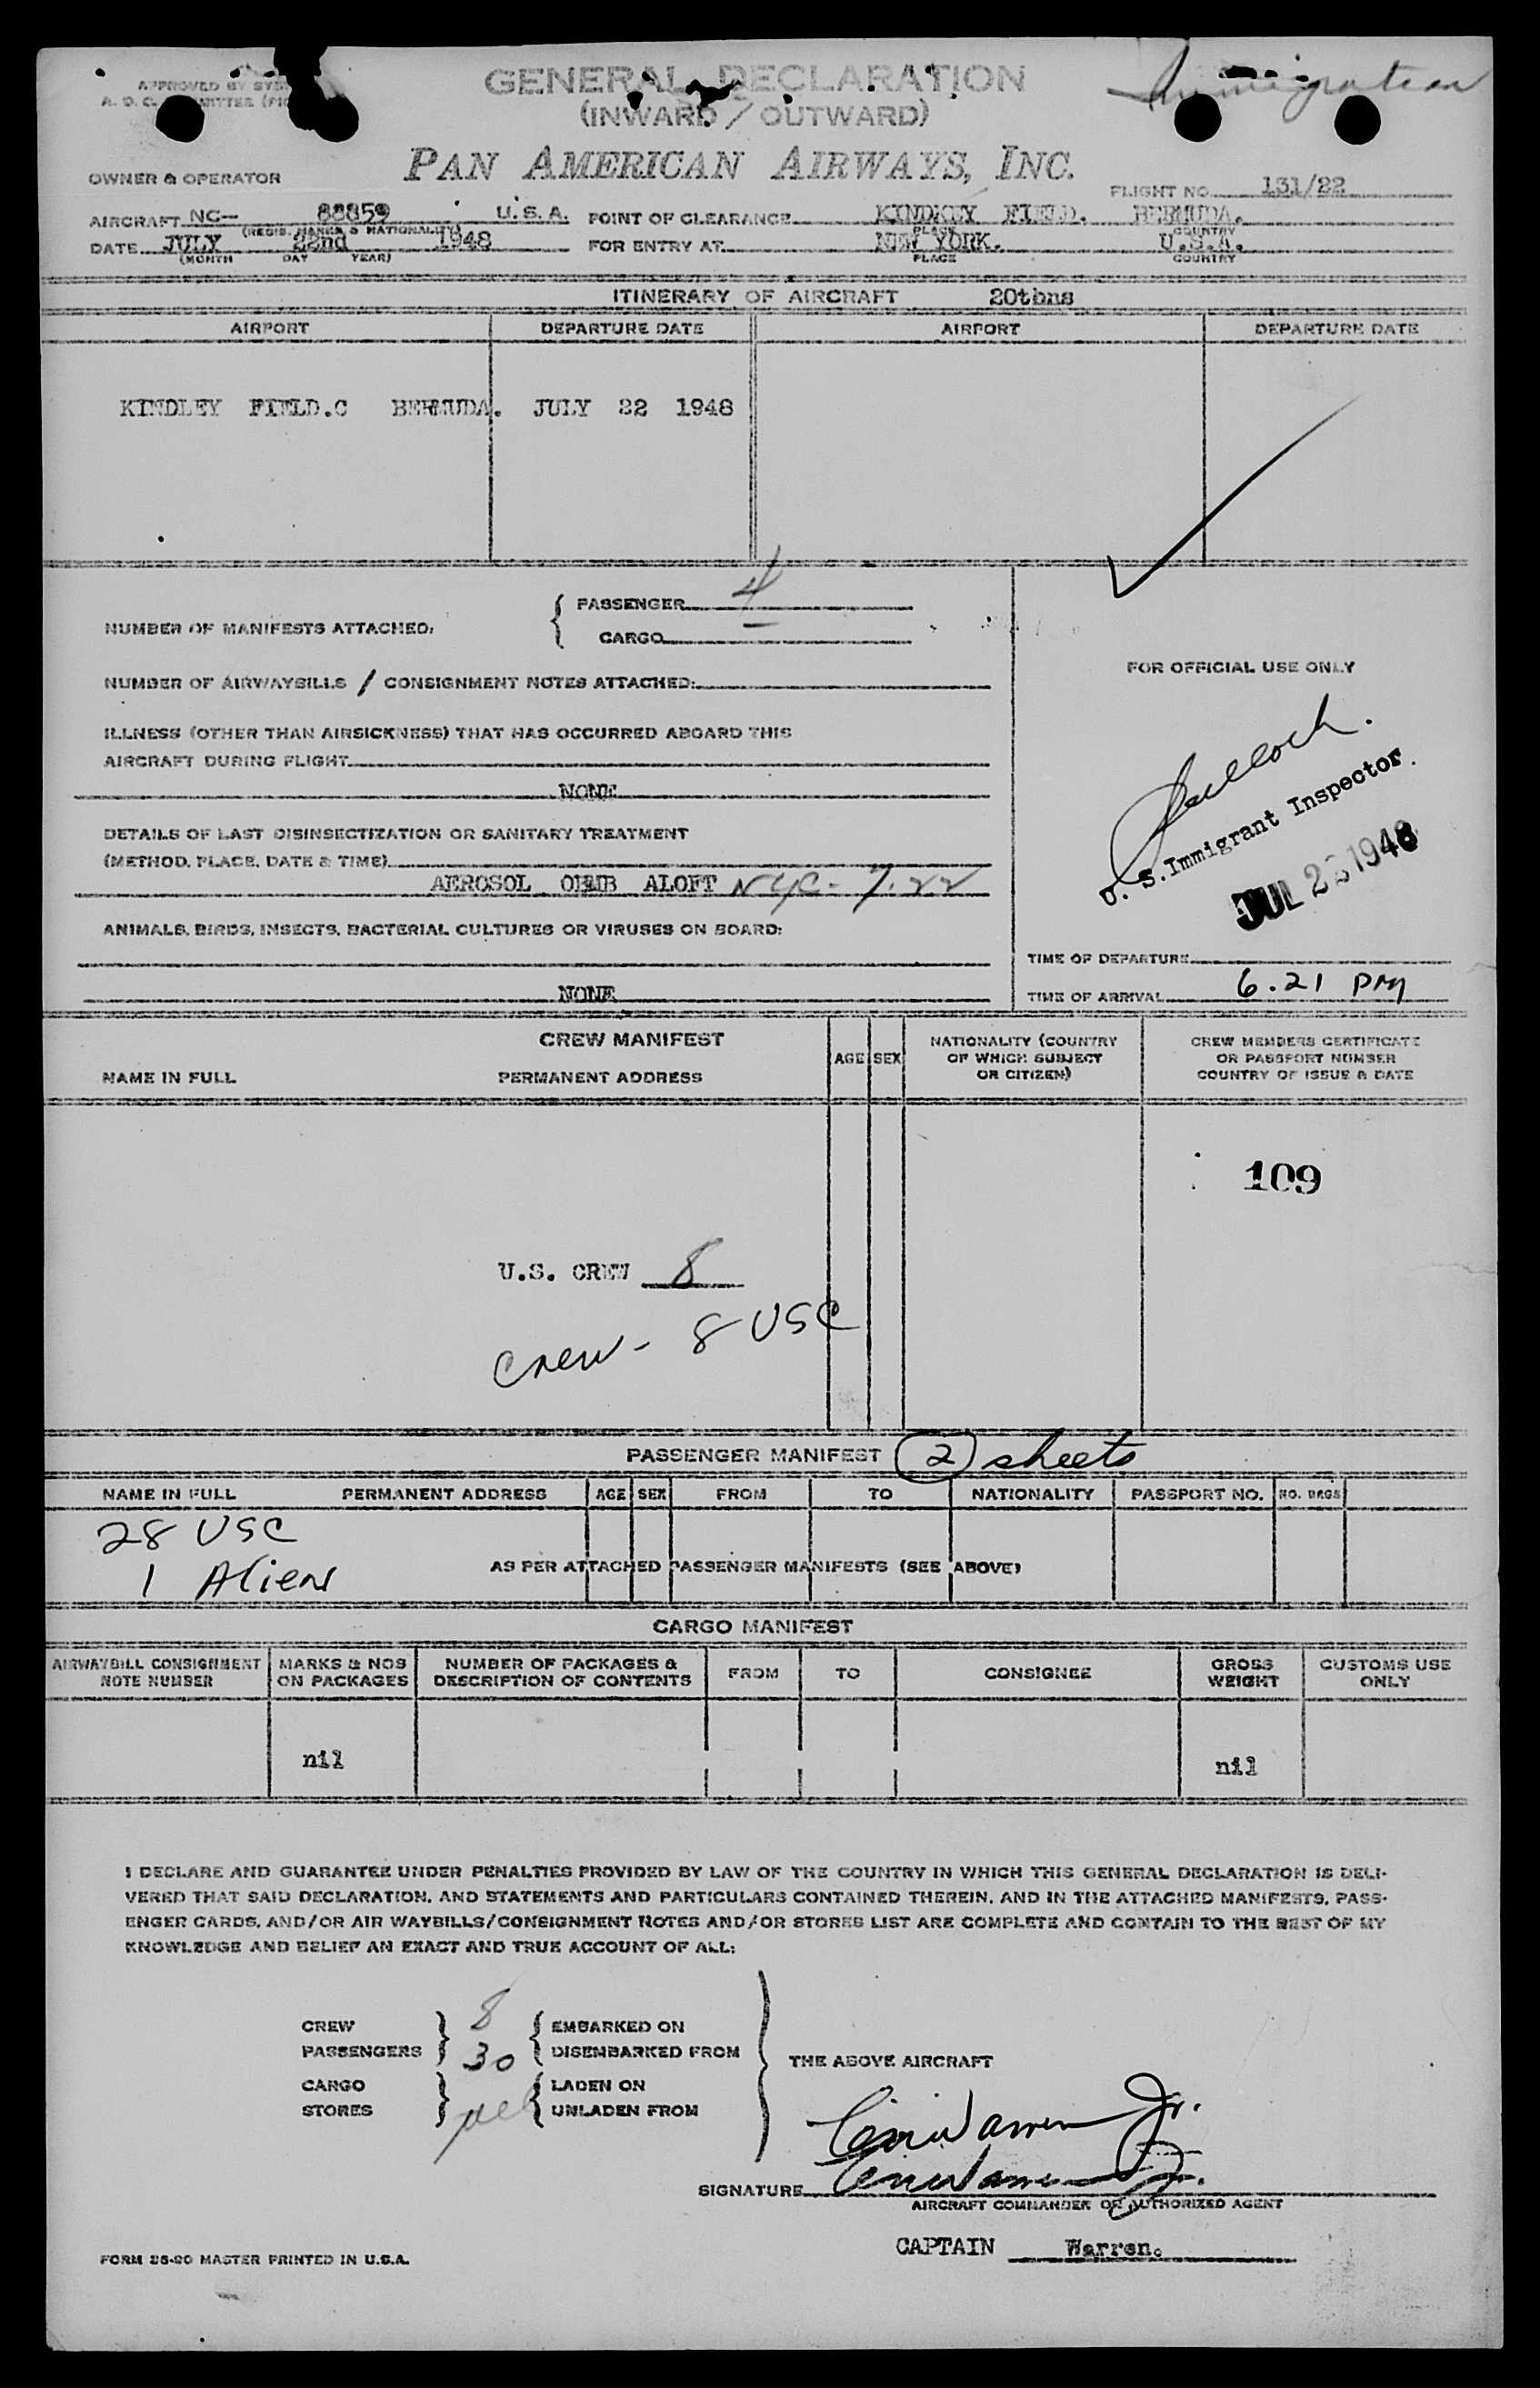 APPROVED BY
A. O. C.
GENERAL DECLARATION
(INWARD / OUTWARD)
Immigration
OWNER & OPERATOR
PAN AMERICAN AIRWAYS, INC.
FLIGHT NO. 131/22
AIRCRAFT NC- 88859 U.S.A. POINT OF CLEARANCE KINDKEY FIELD. BERMUDA.
(REGIS. MARKS & NATIONALITY) PLACE COUNTRY
DATE JULY 22nd 1948 FOR ENTRY AT NEW YORK. U.S.A.
(MONTH DAY YEAR) PLACE COUNTRY
ITINERARY OF AIRCRAFT 20thns
AIRPORT DEPARTURE DATE AIRPORT DEPARTURE DATE
KINDLEY FIELD.C BERMUDA. JULY 22 1948
NUMBER OF MANIFESTS ATTACHED:
PASSENGER 4
CARGO —
NUMBER OF AIRWAYBILLS / CONSIGNMENT NOTES ATTACHED:
ILLNESS (OTHER THAN AIRSICKNESS) THAT HAS OCCURRED ABOARD THIS
AIRCRAFT DURING FLIGHT
NONE
DETAILS OF LAST DISINSECTIZATION OR SANITARY TREATMENT
(METHOD, PLACE, DATE & TIME)
AEROSOL ALOFT NYC- 7.22
ANIMALS, BIRDS, INSECTS, BACTERIAL CULTURES OR VIRUSES ON BOARD:
NONE
FOR OFFICIAL USE ONLY
U. S. Immigrant Inspector.
JUL 1948
TIME OF DEPARTURE
TIME OF ARRIVAL 6.21 PM
CREW MANIFEST
NAME IN FULL PERMANENT ADDRESS AGE SEX NATIONALITY (COUNTRY OF WHICH SUBJECT OR CITIZEN) CREW MEMBERS CERTIFICATE OR PASSPORT NUMBER COUNTRY OF ISSUE & DATE
109
U.S. CREW 8
Crew - 8 USC
PASSENGER MANIFEST 2 sheets
NAME IN FULL PERMANENT ADDRESS AGE SEX FROM TO NATIONALITY PASSPORT NO. NO. BAGS
28 USC
1 Alien
AS PER ATTACHED PASSENGER MANIFESTS (SEE ABOVE)
CARGO MANIFEST
AIRWAYBILL CONSIGNMENT NOTE NUMBER MARKS & NOS ON PACKAGES NUMBER OF PACKAGES & DESCRIPTION OF CONTENTS FROM TO CONSIGNEE GROSS WEIGHT CUSTOMS USE ONLY
nil nil
I DECLARE AND GUARANTEE UNDER PENALTIES PROVIDED BY LAW OF THE COUNTRY IN WHICH THIS GENERAL DECLARATION IS DELI-
VERED THAT SAID DECLARATION, AND STATEMENTS AND PARTICULARS CONTAINED THEREIN, AND IN THE ATTACHED MANIFESTS, PASS-
ENGER CARDS, AND/OR AIR WAYBILLS/CONSIGNMENT NOTES AND/OR STORES LIST ARE COMPLETE AND CONTAIN TO THE BEST OF MY
KNOWLEDGE AND BELIEF AN EXACT AND TRUE ACCOUNT OF ALL:
CREW 8 EMBARKED ON
PASSENGERS 30 DISEMBARKED FROM
THE ABOVE AIRCRAFT
CARGO LADEN ON
STORES nil UNLADEN FROM
SIGNATURE
AIRCRAFT COMMANDER OR AUTHORIZED AGENT
CAPTAIN Warren.
FORM 25-20 MASTER PRINTED IN U.S.A.